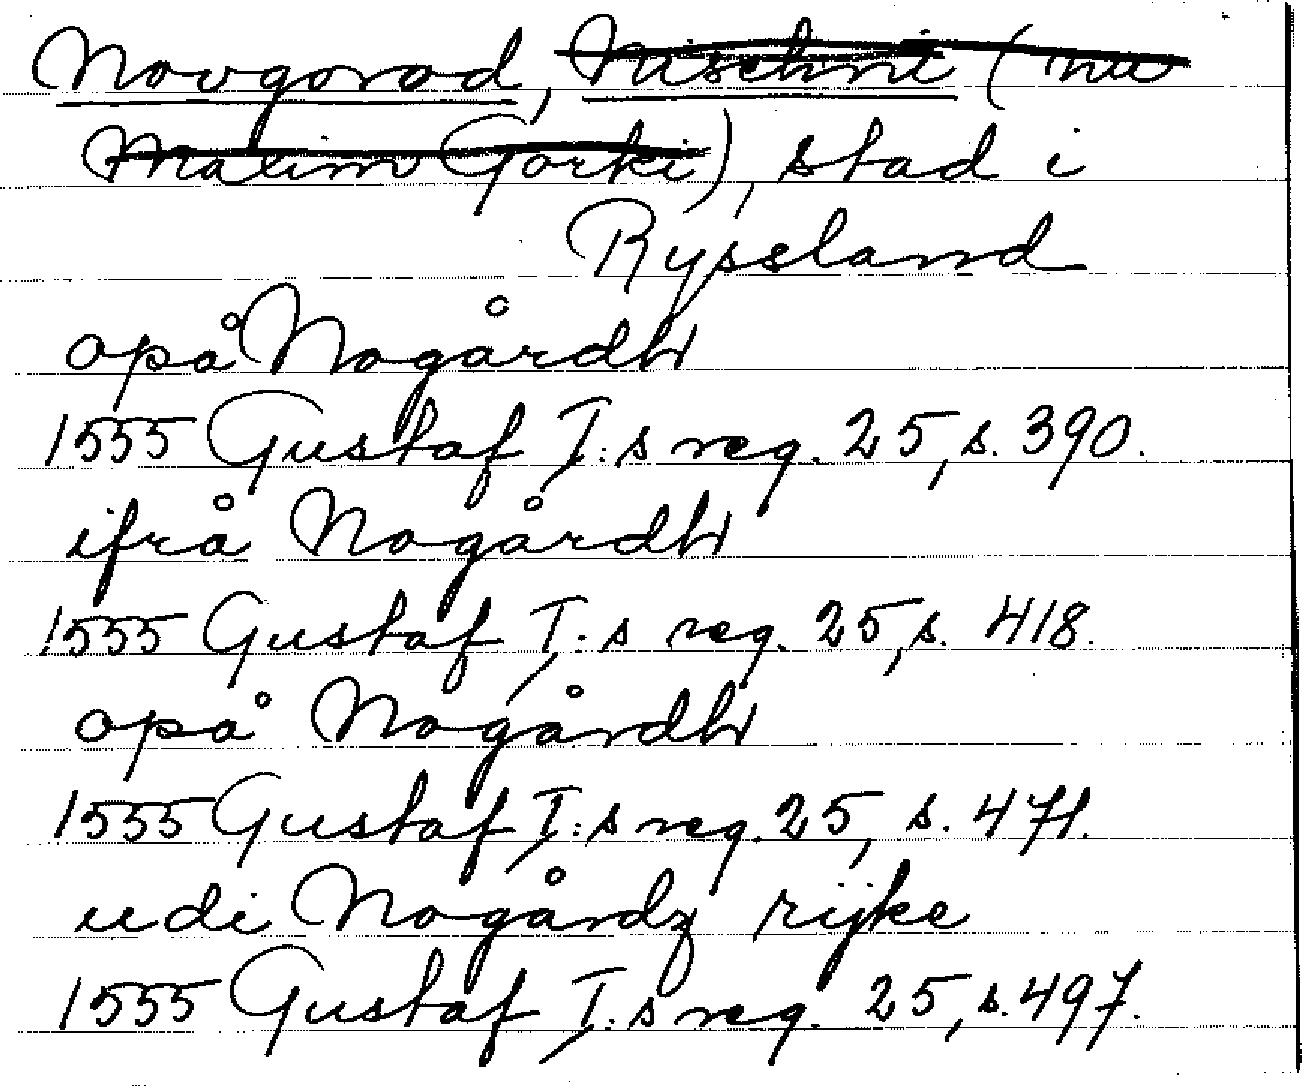 Novgorod, Nischni (nu
Maxim Gorki), stad i
Ryssland
opå Nogårdh
1555 Gustaf I:s reg. 25, s. 390.
ifrå Nogårdh
1555 Gustaf I:s reg. 25, s. 418.
opå Nogårdh
1555 Gustaf I:s reg. 25, s. 471.
udi Nogårdz rijke
1555 Gustaf I:s reg. 25, s. 497.